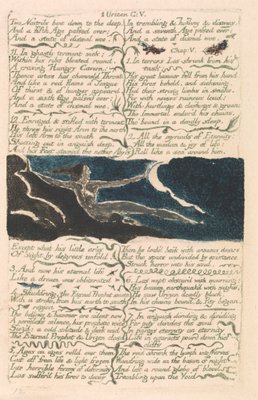 Urizen C: V.
Two Nostrils bent down to the deep.
And a fifth Age passed over;
And a state of dismal woe.
11. In ghastly torment sick;
Within his ribs bloated round,
A craving Hungry Cavern;
Thence arose his channeld Throat,
And like a red flame a Tongue
Of thirst & of hunger appeard.
And a sixth Age passed over:
And a state of dismal woe.
12. Enraged & stifled with torment
He threw his right Arm to the north
His left Arm to the south
Shooting out in anguish deep,
And his Feet stampd the nether Abyss
In trembling & howling & dismay.
And a seventh Age passed over:
And a state of dismal woe.
Chap: V.
1. In terrors Los shrunk from his
task:
His great hammer fell from his hand:
His fires beheld, and sickening,
Hid their strong limbs in smoke.
For with noises ruinous loud;
With hurtlings & clashings & groans
The Immortal endur'd his chains,
Tho' bound in a deadly sleep.
2. All the myriads of Eternity:
All the wisdom & joy of life:
Roll like a sea around him,
Except what his little orbs
Of sight by degrees unfold.
3. And now his eternal life
Like a dream was obliterated
4. Shudd'ring, the Eternal Prophet smote
With a stroke, from his north to south
region
The bellows & hammer are silent now
A nerveless silence, his prophetic voice
Siez'd; a cold solitude & dark void
The Eternal Prophet & Urizen clos'd
5. Ages on ages rolld over them
Cut off from life & light frozen
Into horrible forms of deformity
Los suffer'd his fires to decay
Then he look'd back with anxious desire
But the space undivided by existence
Struck horror into his soul.
6. Los wept obscur'd with mourning:
His bosom earthquak'd with sighs;
He saw Urizen deadly black,
In his chains bound, & Pity began,
7. In anguish dividing & dividing
For pity divides the soul
In pangs eternity on eternity
Life in cataracts pourd down his
cliffs
The void shrunk the lymph into Nerves
Wand'ring wide on the bosom of night
And left a round globe of blood
Trembling upon the Void